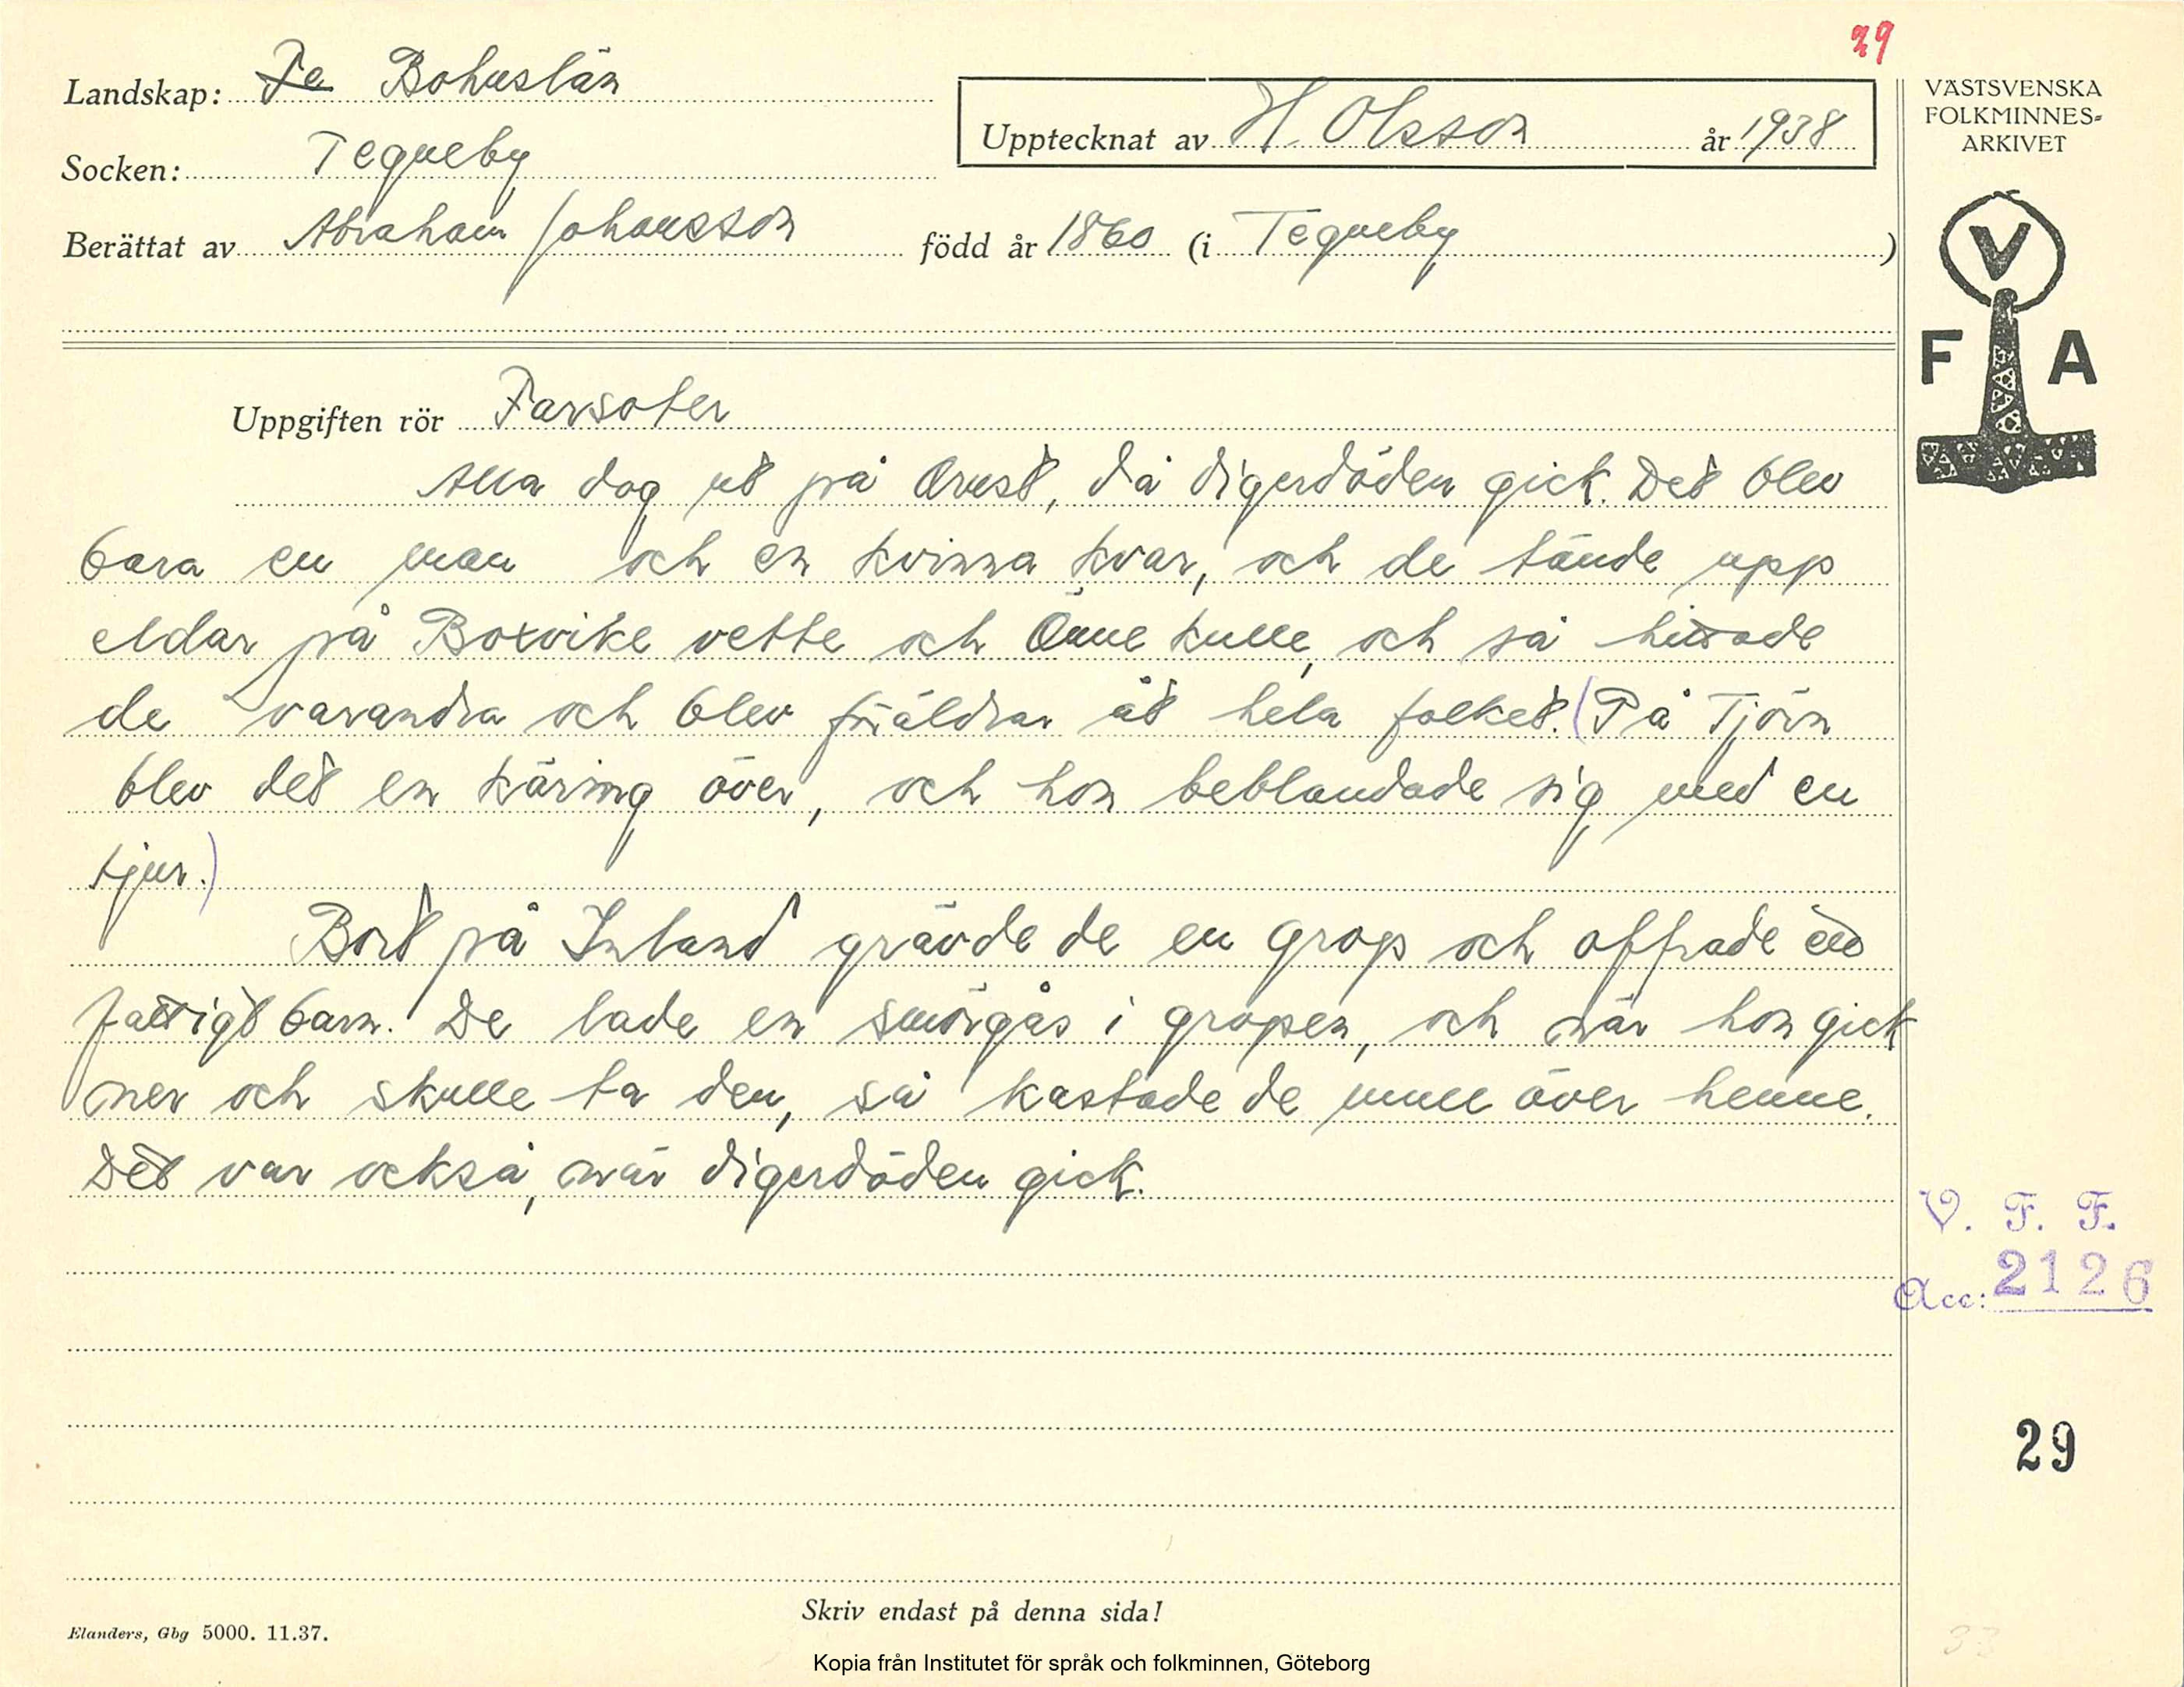 29
Landskap: Fe Bohuslän
Socken: Tegneby
Upptecknat av H. Olsson år 1938
Berättat av Abraham Johansson född år 1860 (i Tegneby)
VÄSTSVENSKA
FOLKMINNES-
ARKIVET
V
F A
Uppgiften rör Farsoter
Alla dog ut på Orust, då digerdöden gick. Det blev
bara en man och en kvinna kvar, och de tände upp
eldar på Boxvike vette och Önne kulle, och så hittade
de varandra och blev föräldrar åt hela folket. (På Tjörn
blev det en käring över, och hon beblandade sig med en
tjur.)
Bort på Inland grävde de en grop och offrade ett
fattigt barn. De lade en smörgås i gropen, och när hon gick
ner och skulle ta den, så kastade de mull över henne.
Det var också, när digerdöden gick.
V. F. F.
Acc: 2126
29
Skriv endast på denna sida!
Elanders, Gbg 5000. 11.37.
33
Kopia från Institutet för språk och folkminnen, Göteborg